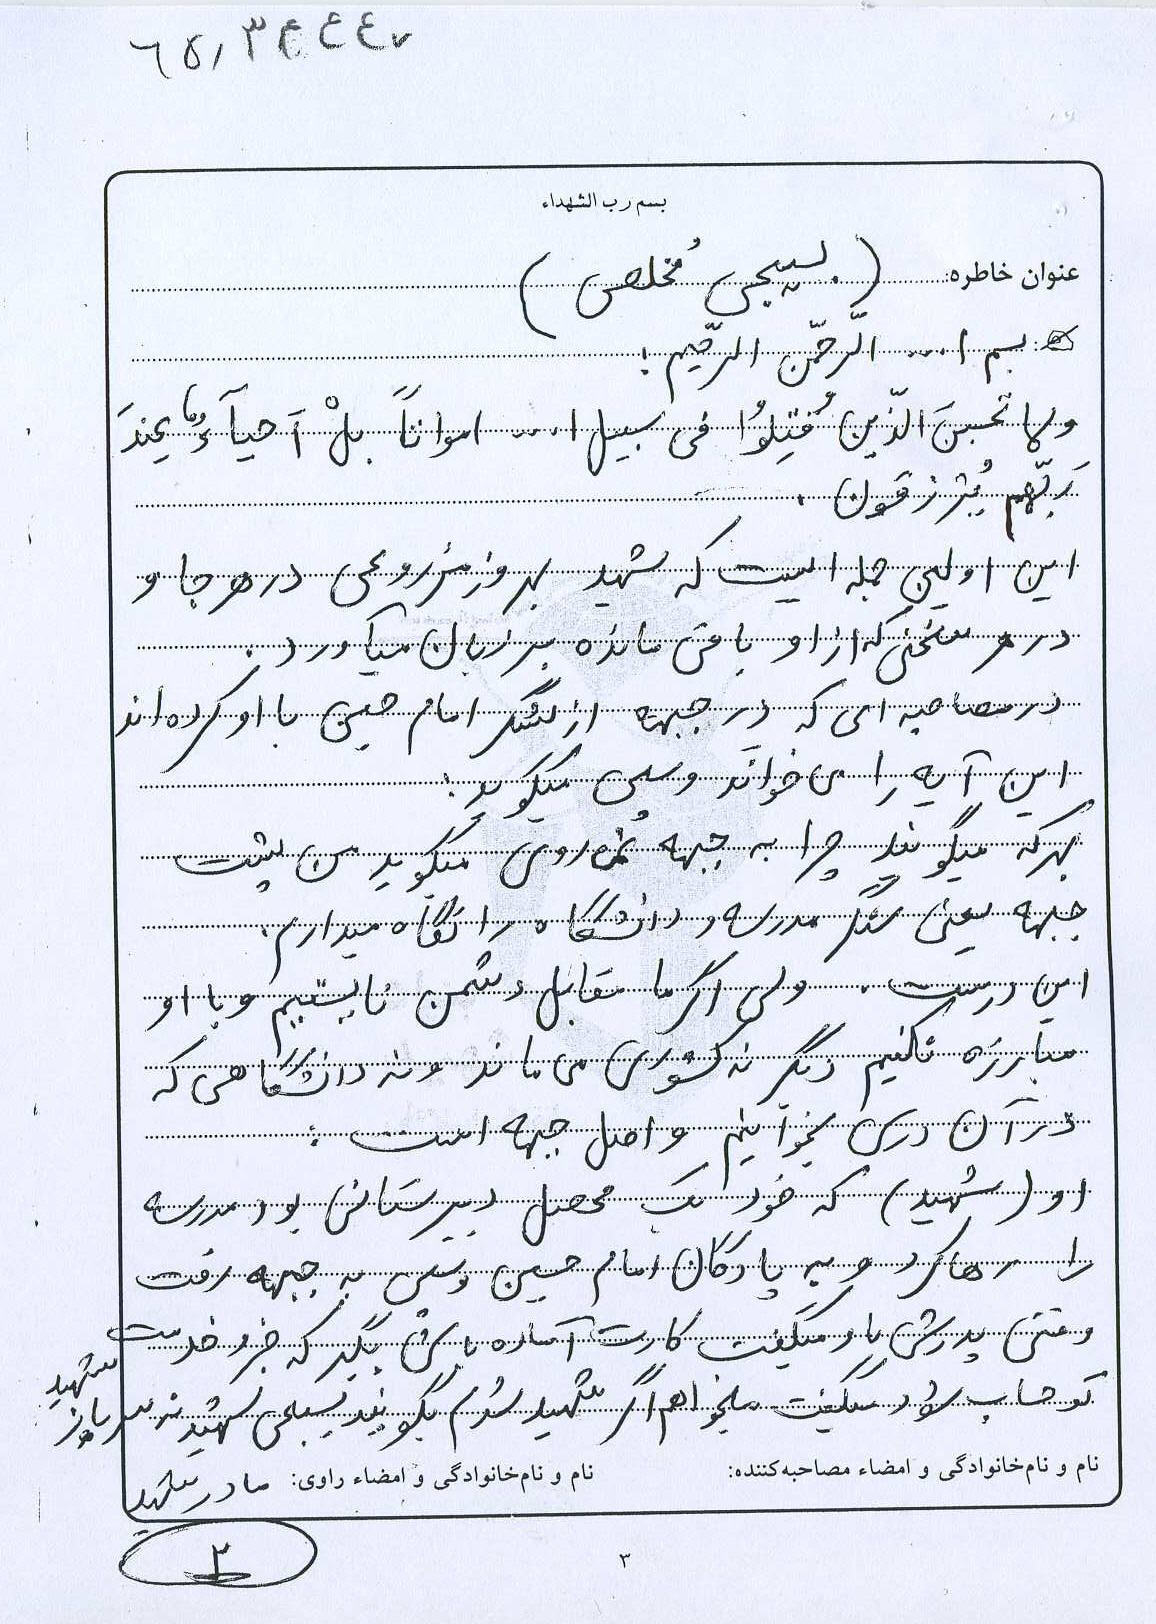 ۶۵/۳۴۴۴۷
بسم رب الشهداء
عنوان خاطره: (بسیجی مُخلص)
بسم ا... الّرحمّن الرحّیم؛
ولا تحسبنَ الّذین قُتِلوُا فی سبیل ا... امواتاً بلْ اَحیآءُ عِندَ
رَبّهم یُرزقون.
این اولین جمله ایست که شهید بهروز مزروعی در هر جا و
در هر سخنی که از او باقی مانده بر زبان میآورد.
در مصاحبه ای که در جبهه از لشگر امام حسین با او کرده اند
این آیه را می خواند وسپس میگوید:
بهرکه میگویند چرا به جبهه نمی روی میگوید من پشت
جبهه یعنی سنگر مدرسه و دانشگاه را نگاه میدارم.
این درست. ولی اگر ما مقابل دشمن نایستیم و با او
مبارزه نکنیم دیگر نه کشوری می ماند و نه دانشگاهی که
در آن درس بخوانیم و اصل جبهه است:
او (شهید) که خود یک محصل دبیرستانی بود مدرسه
را رها کرد و به پادگان امام حسین وسپس به جبهه رفت
وقتی پدرش باو میگفت کارت آماده باش بگیر که جزو خدمت
تو حساب شود میگفت میخواهم اگر شهید شدم بگویند بسیجی شهید نه سرباز شهید
نام و نام‌خانوادگی و امضاء مصاحبه‌کننده: نام و نام‌خانوادگی و امضاء راوی: مادر شهید
۳
۳